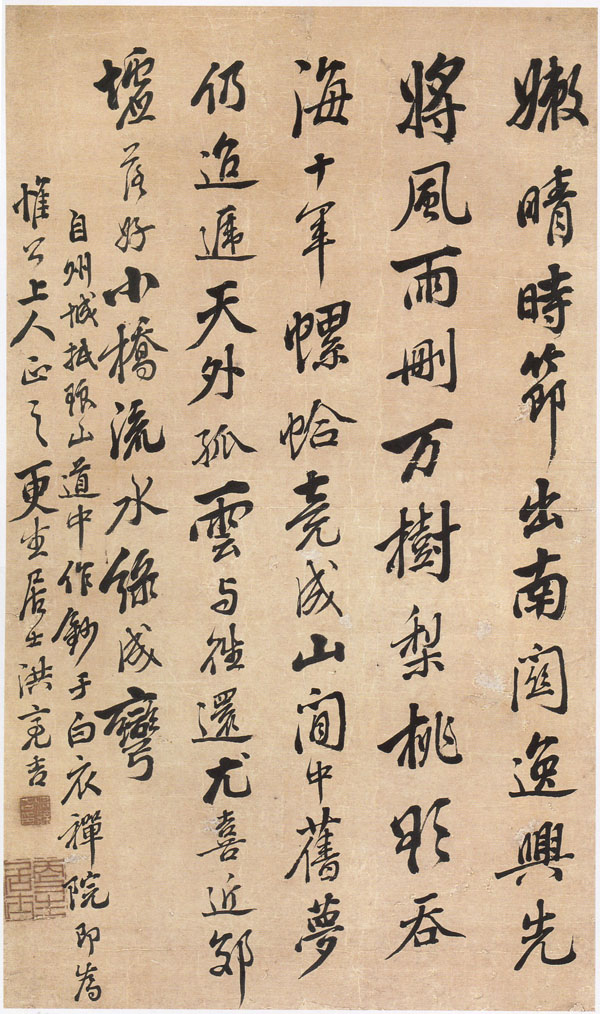 嫩晴時節出南闗逸興先
將風雨刪万樹梨桃吞
海十年螺蛤竟成山閒中舊夢
仍迢遞天外孤雲与徃還尤喜近郊
墟落好小橋流水綠成彎
自州城抵琅山道中作鈔于白衣禪院即為
惟公上人正之更生居士洪亮吉
更生居士